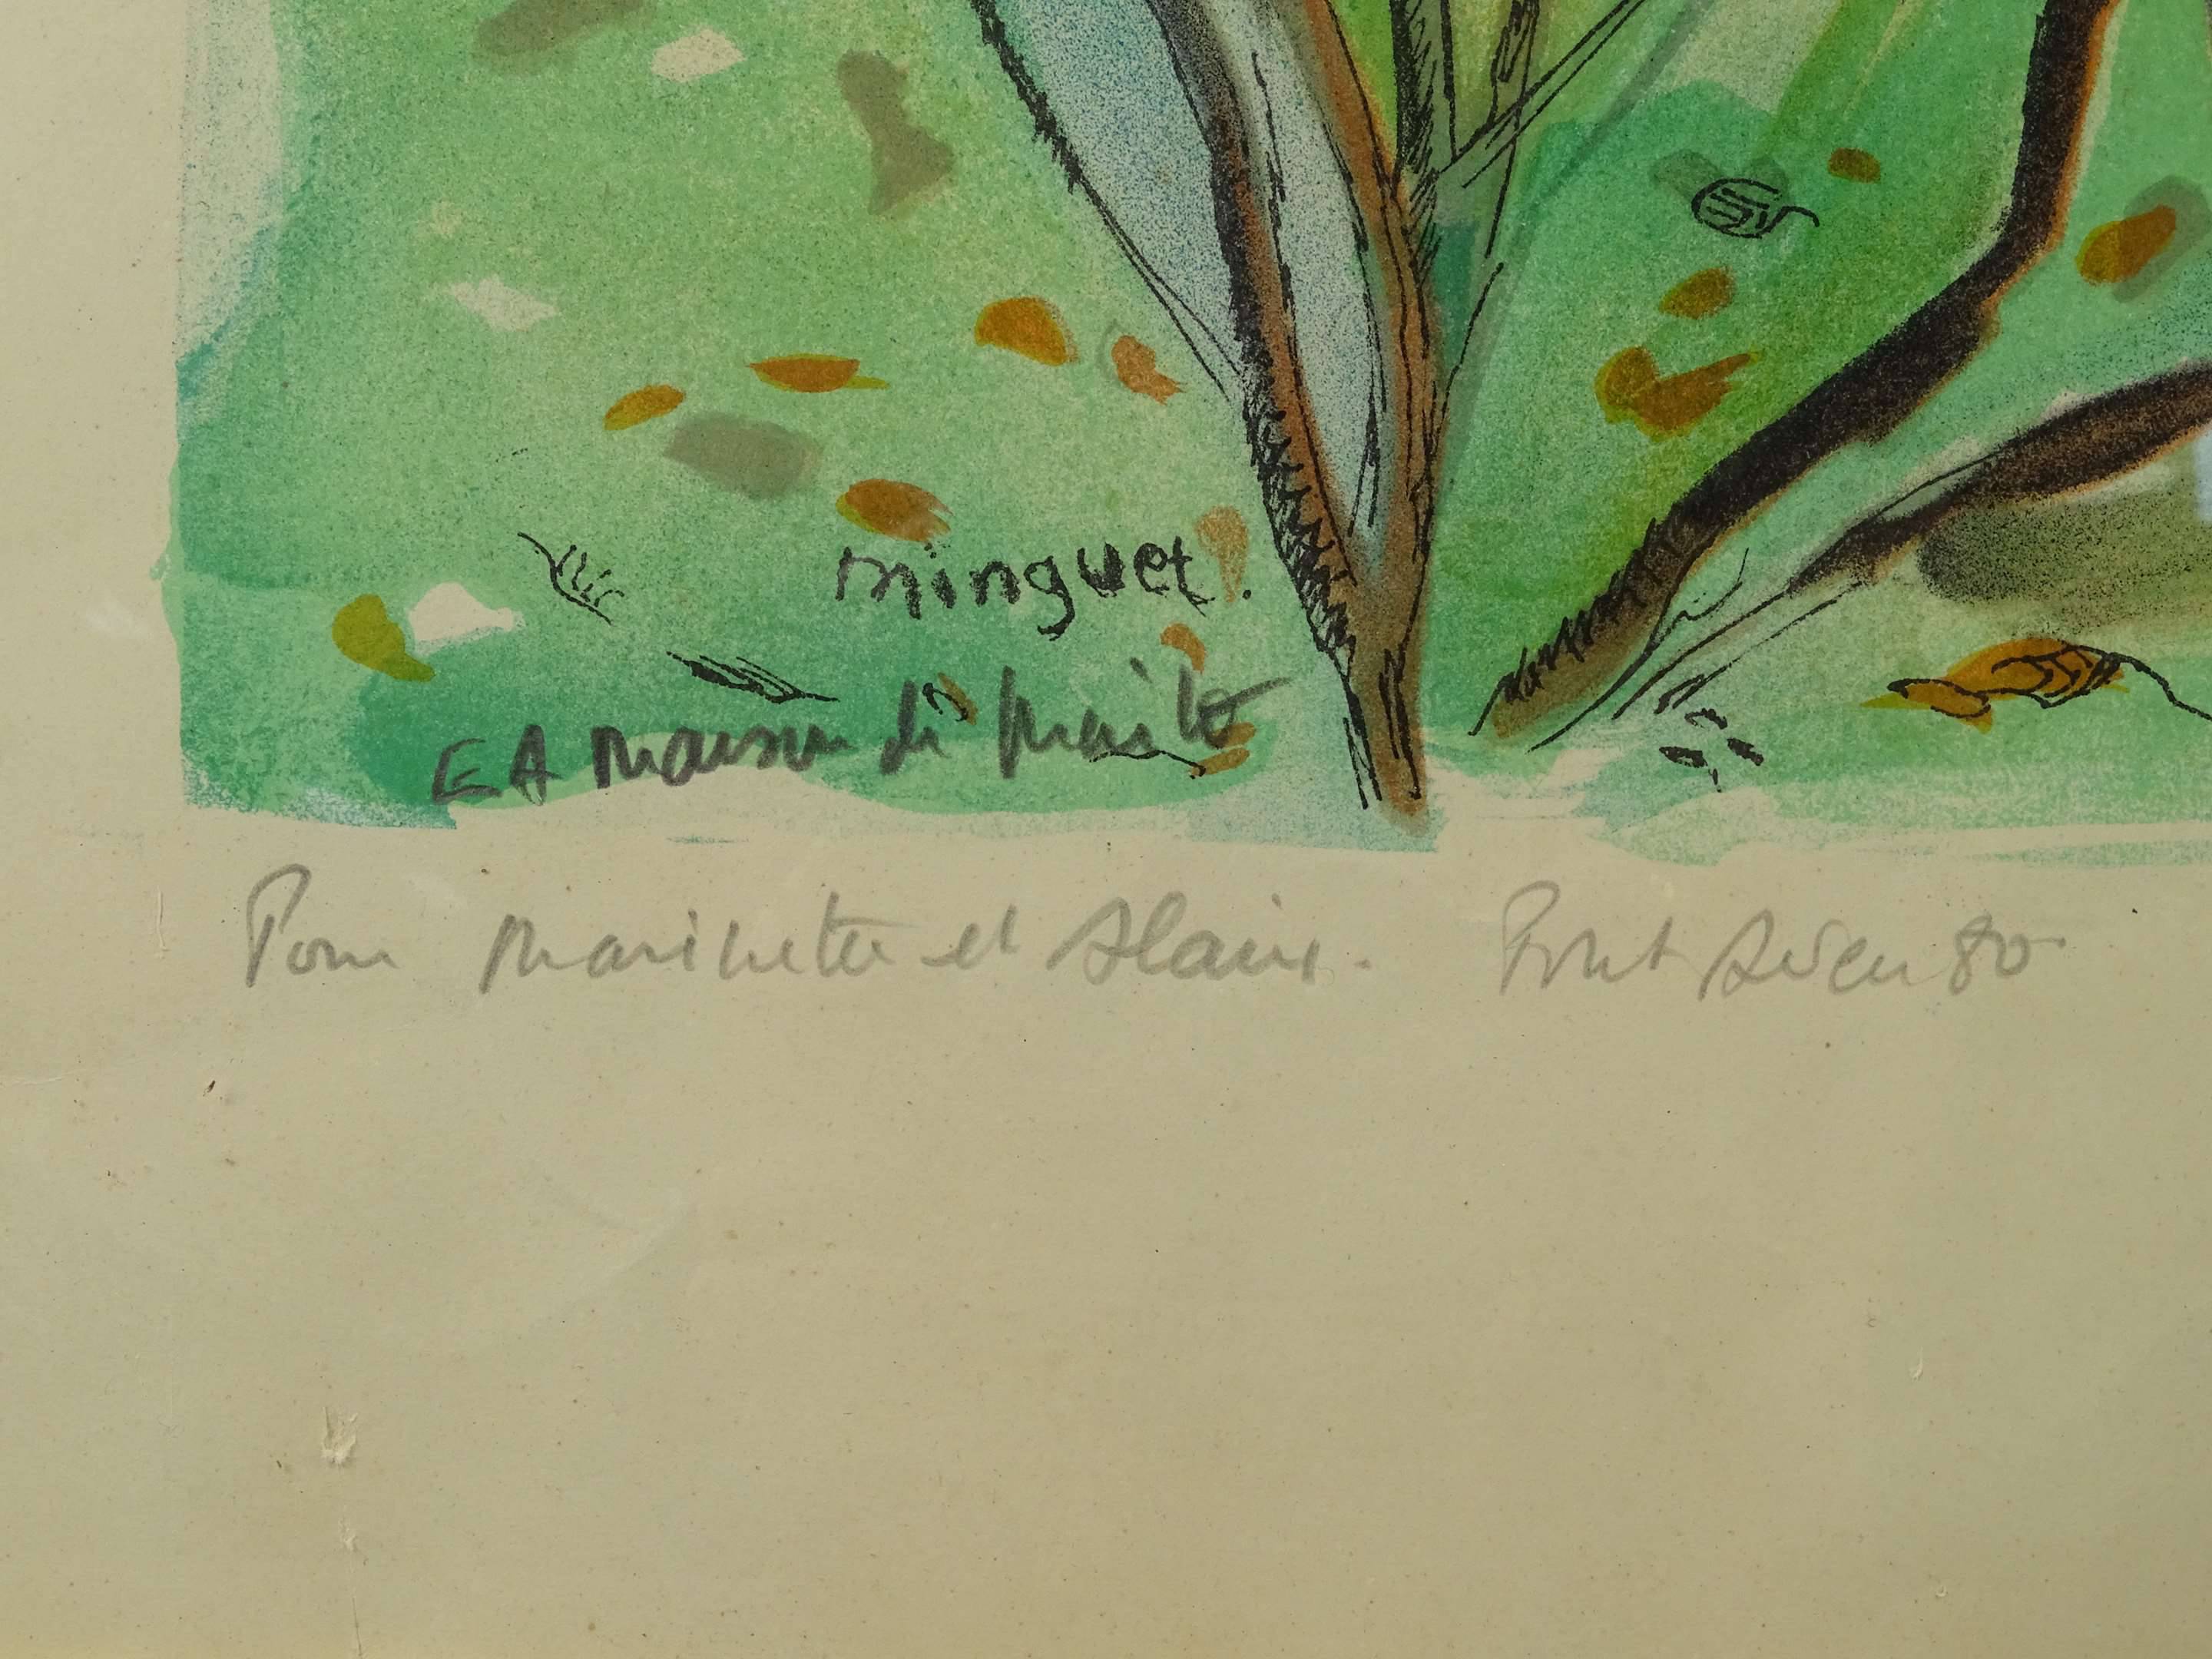 minguet.
EA Maison de
Pour Marinette et Alain. Pont Aven 80